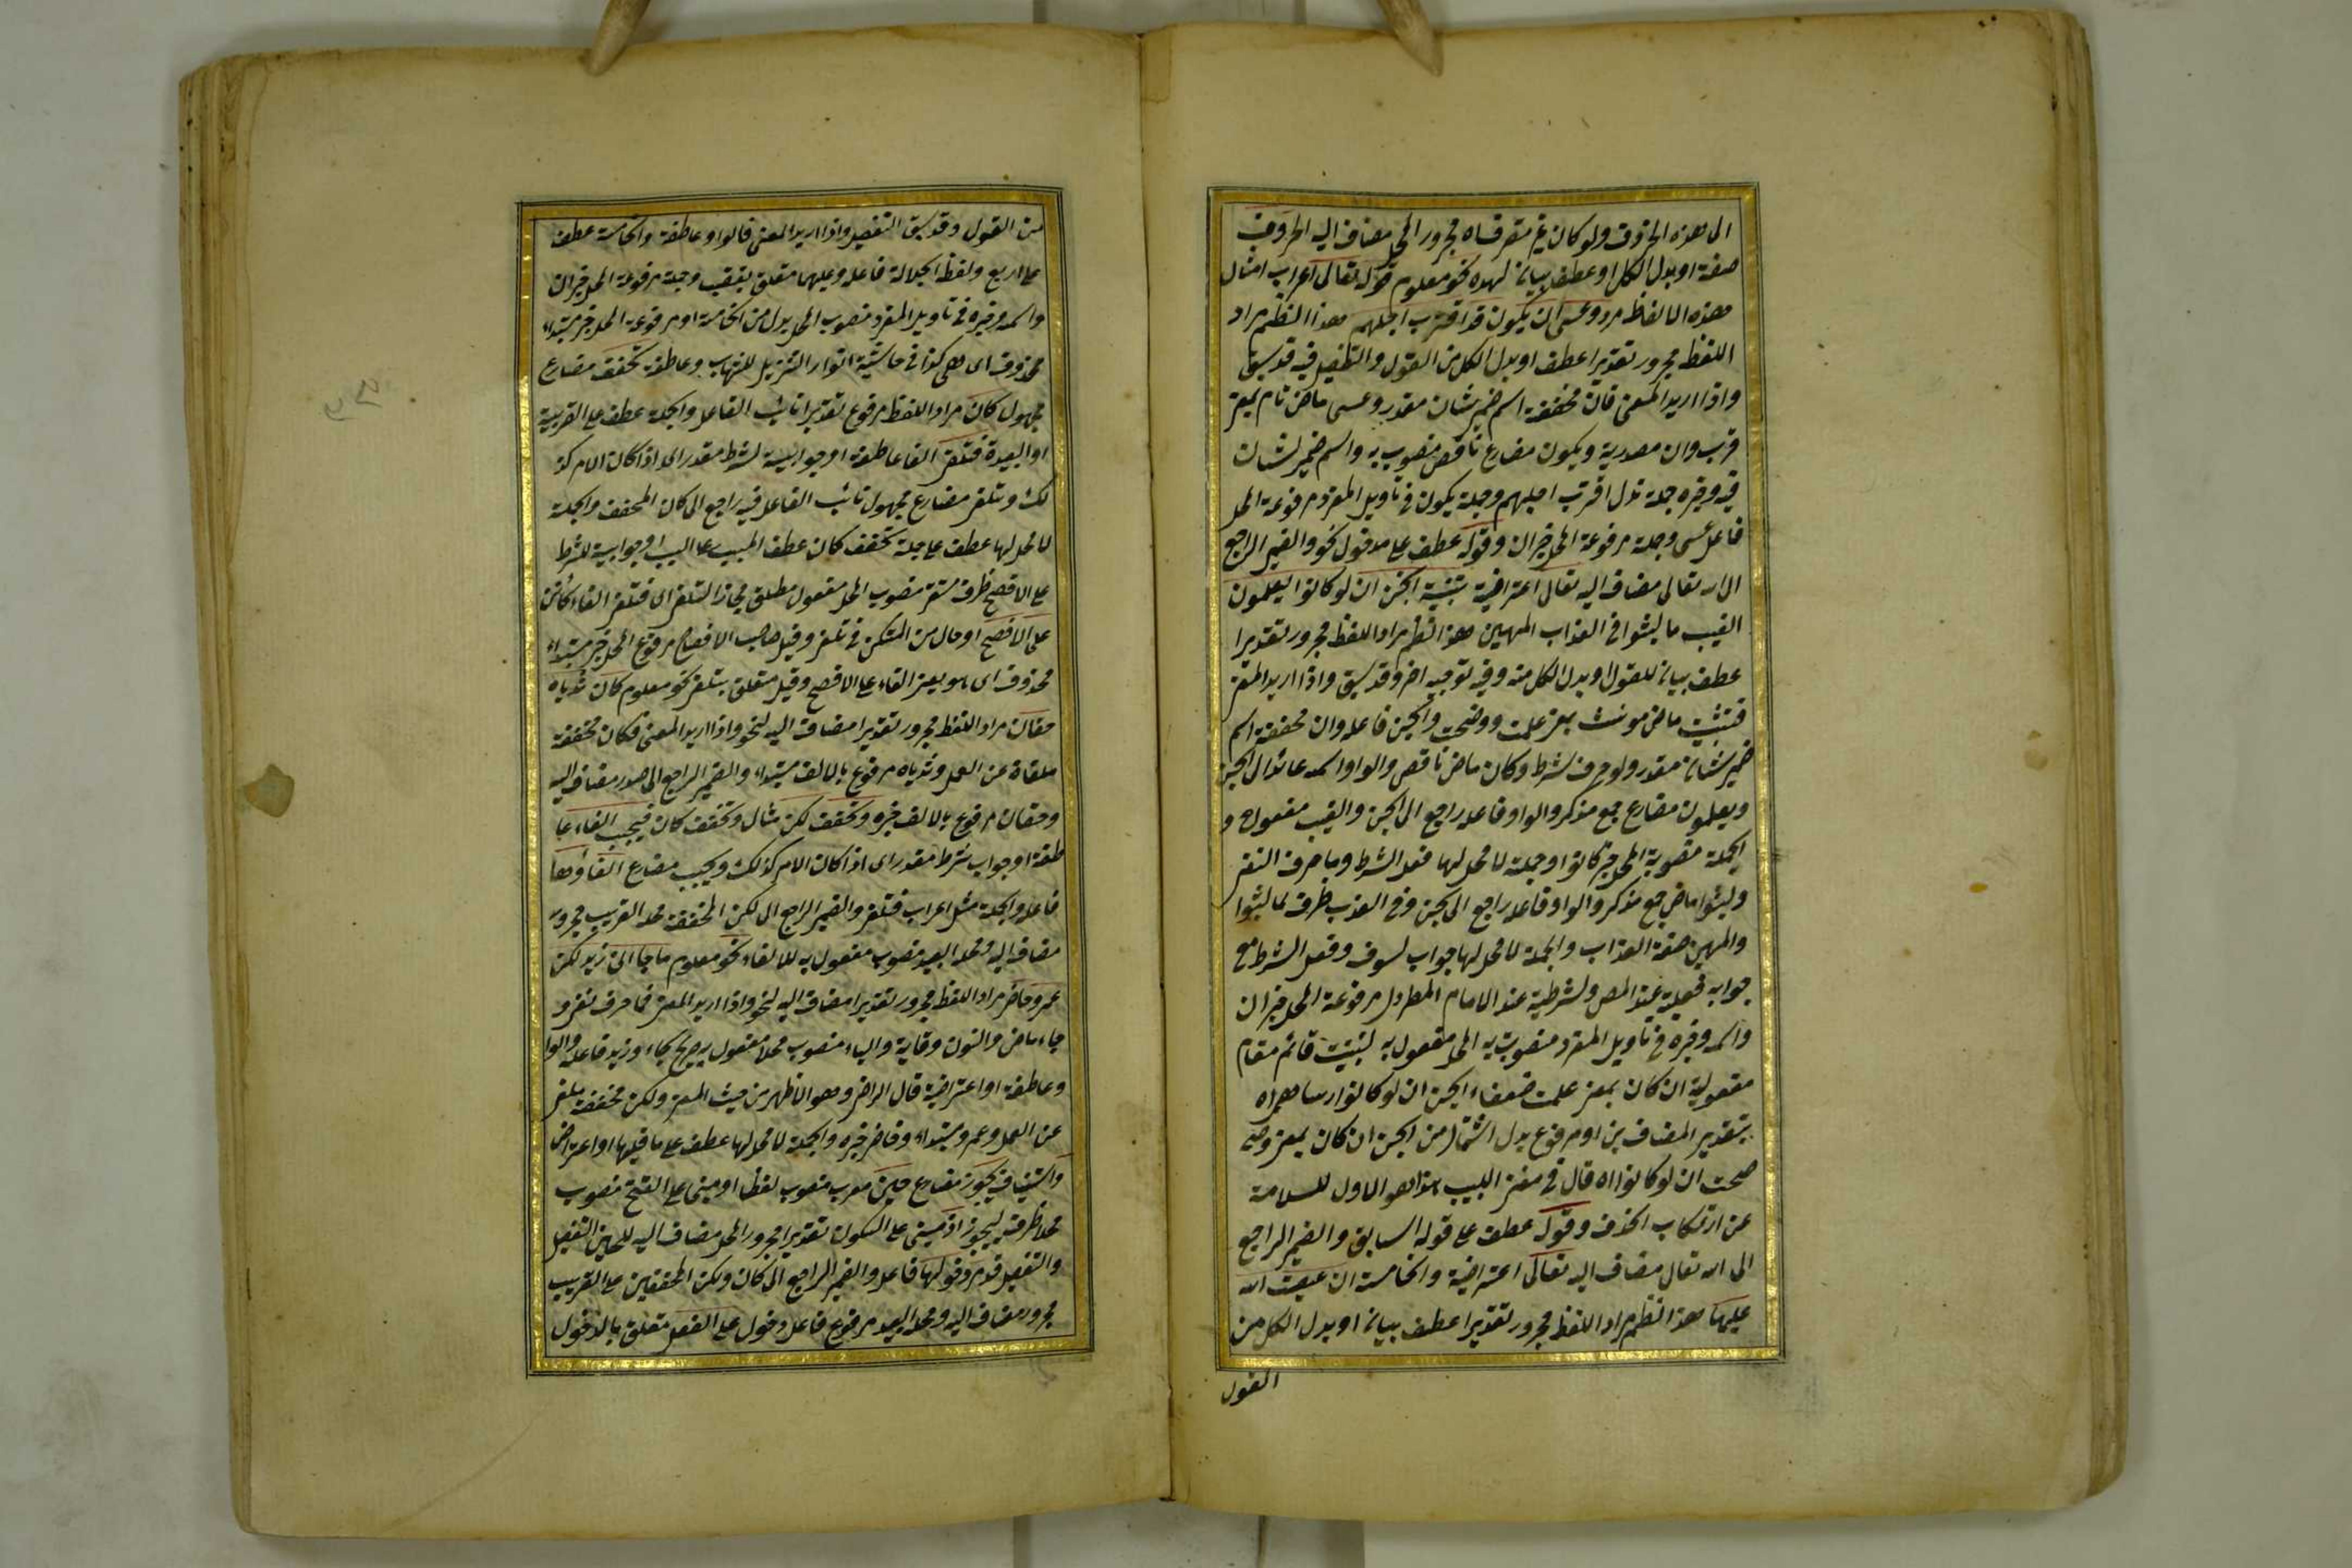 الى هذه الحروف ولو كان غير متصرفاه مجرور المحل مضاف اليه الحروف
صفة او بدل الكل او عطف بيان لهذه نحو معلوم قوله تعالى اعراب امثال
هذه الالفاظ مر وعسى ان يكون قد اقترب اجلهم هذا النظم مراد
اللفظ مجرور تقديرا عطف او بدل الكل من القول والتفصيل فيه قد سبق
واذا اريد المعنى فان مخففة اسم ضمير شان مقدر وعسى ماض تام بمعنى
قرب وان مصدرية ويكون مضارع ناقص منصوب به واسم ضمير لشان
فيه وخبره جملة قد اقترب اجلهم وجملة يكون في تاويل المفرد مرفوعة المحل
فاعل عسى وجملته مرفوعة المحل خبر ان وقوله عطف على مدخول نحو والضمير الراجع
الى الله تعالى مضاف اليه تعالى اعتراضية تبينت الجن ان لو كانوا يعلمون
الغيب ما لبثوا في العذاب المهين هذا النظم مراد اللفظ مجرور تقديرا
عطف بيان للقول او بدل الكل منه وفيه توجيه اخر وقد سبق واذا اريد المعنى
فتبينت ماض مونث بمعنى علمت ووضحت والجن فاعله وان مخففة اسم
ضمير شان مقدر ولو حرف لشرط وكان ماض ناقص والواو اسمه عائد الى الجن
ويعلمون مضارع جمع مذكر والواو فاعله راجع الى الجن والغيب مفعوله و
الجملة منصوبة المحل خبر كانوا وجملة لا محل لها فعل الشرط وما حرف النفى
ولبثوا ماض جمع مذكر والواو فاعله راجع الى الجن وفي العذاب ظرف لما لبثوا
والمهين صفة العذاب والجملة لا محل لها جواب لسوف وفعل الشرط مع
جوابه فعلية عند المص ولشرطية عند الامام المطول مرفوعة المحل خبر ان
واسمه وخبره في تاويل المفرد منصوب به المحل مفعول به لتبينت قائم مقام
مفعوليه ان كان بمعنى علمت ضعفاء الجن ان لو كانوا رساهم اه
بتقدير المضاف بن او مرفوع بدل اشتمال من الجن ان كان بمعنى وضح
صحت ان لو كانوا اه قال في مغنى اللبيب هذا هو الاول للسلامة
عن ارتكاب الحذف وقوله عطف على قوله السابق والضمير الراجع
الى الله تعالى مضاف اليه تعالى اعتراضية والخامسة ان غضب الله
عليها هذا النظم مراد اللفظ مجرور تقديرا عطف بيان او بدل الكل من
القول
من القول وقد سبق التفصيل واذا اريد المعنى فالواو عاطفة والخامسة عطف
على اربع ولفظ الجلالة فاعله وعليها متعلق بغضب وجملة مرفوعة المحل خبر ان
واسمه وخبره في تاويل المفرد منصوب المحل بدل من الخامسة او مرفوعة المحل خبر مبتداء
محذوف اى هى كذا في حاشية انوار التنزيل للشهاب وعاطفة تخفف مضارع
مجهول كان مراد اللفظ مرفوع تقديرا نائب الفاعل والجملة عطف على القريبة
او البعيدة فتلغى الفا عاطفة او جوابية لشرط مقدر اى اذا كان الامر كذ
لك وتلغى مضارع مجهول نائب الفاعل فيه راجع الى كان المخفف والجملة
لا محل لها عطف على جملة تخفف كان عطف المسبب على السبب او جوابية للشرط
على الافصح ظرف مستقر منصوب المحل مفعول مطلق مجازا لتلغى اى فتلغى الغاء كائنا
على الافصح او حال من المستكن في تلغى وقيل صاحب الافصاح مرفوع المحل خبر مبتداء
محذوف اى هو يعنى الغاء على الافصح وقيل متعلق بتلغى نحو معلوم كان ثدياه
حقان مراد اللفظ مجرور تقديرا مضاف اليه لنحو واذا اريد المعنى فكان مخففة
ملغاة عن العمل وثدياه مرفوع بالالف مبتداء والضمير الراجع الى صدر مضاف اليه
وحقان مرفوع بالالف خبره وتخفف لكن مثال وتخفف كان فيجب الغاء عا
طفة او جواب شرط مقدر اى اذا كان الامر كذلك ويجب مضارع الغاؤها
فاعله والجملة مثل اعراب فتلغى والضمير الراجع الى لكن المخففة محله القريب مجرور
مضاف اليه ومحله البعيد منصوب مفعول به للالغاء نحو معلوم ما جاءنى زيد لكن
عمرو حاضر مراد اللفظ مجرور تقديرا مضاف اليه لنحو واذا اريد المعنى فما حرف نفى و
جاء ماض والنون وقاية والياء منصوب محلا مفعول به صريح لجاء وزيد فاعله والوا
و عاطفة او اعتراضية قال الرضى وهو الاظهر من حيث المعنى ولكن مخففة ملغى
عن العمل وعمرو مبتداء وحاضر خبره والجملة لا محل لها عطف على ما قبلها او اعتراض
واستيناف يجوز مضارع حين معرب منصوب لفظا او مبنى على الفتح منصوب
محلا ظرف ليجوز اذ مبنى على السكون تقديرا مجرور المحل مضاف اليه للحين التفصيل
والتفصيل قد مر دخولها فاعله والضمير الراجع الى كان ولكن المخففين محله القريب
مجرور مضاف اليه ومحله البعيد مرفوع فاعل دخول على الفعل متعلق بالدخول